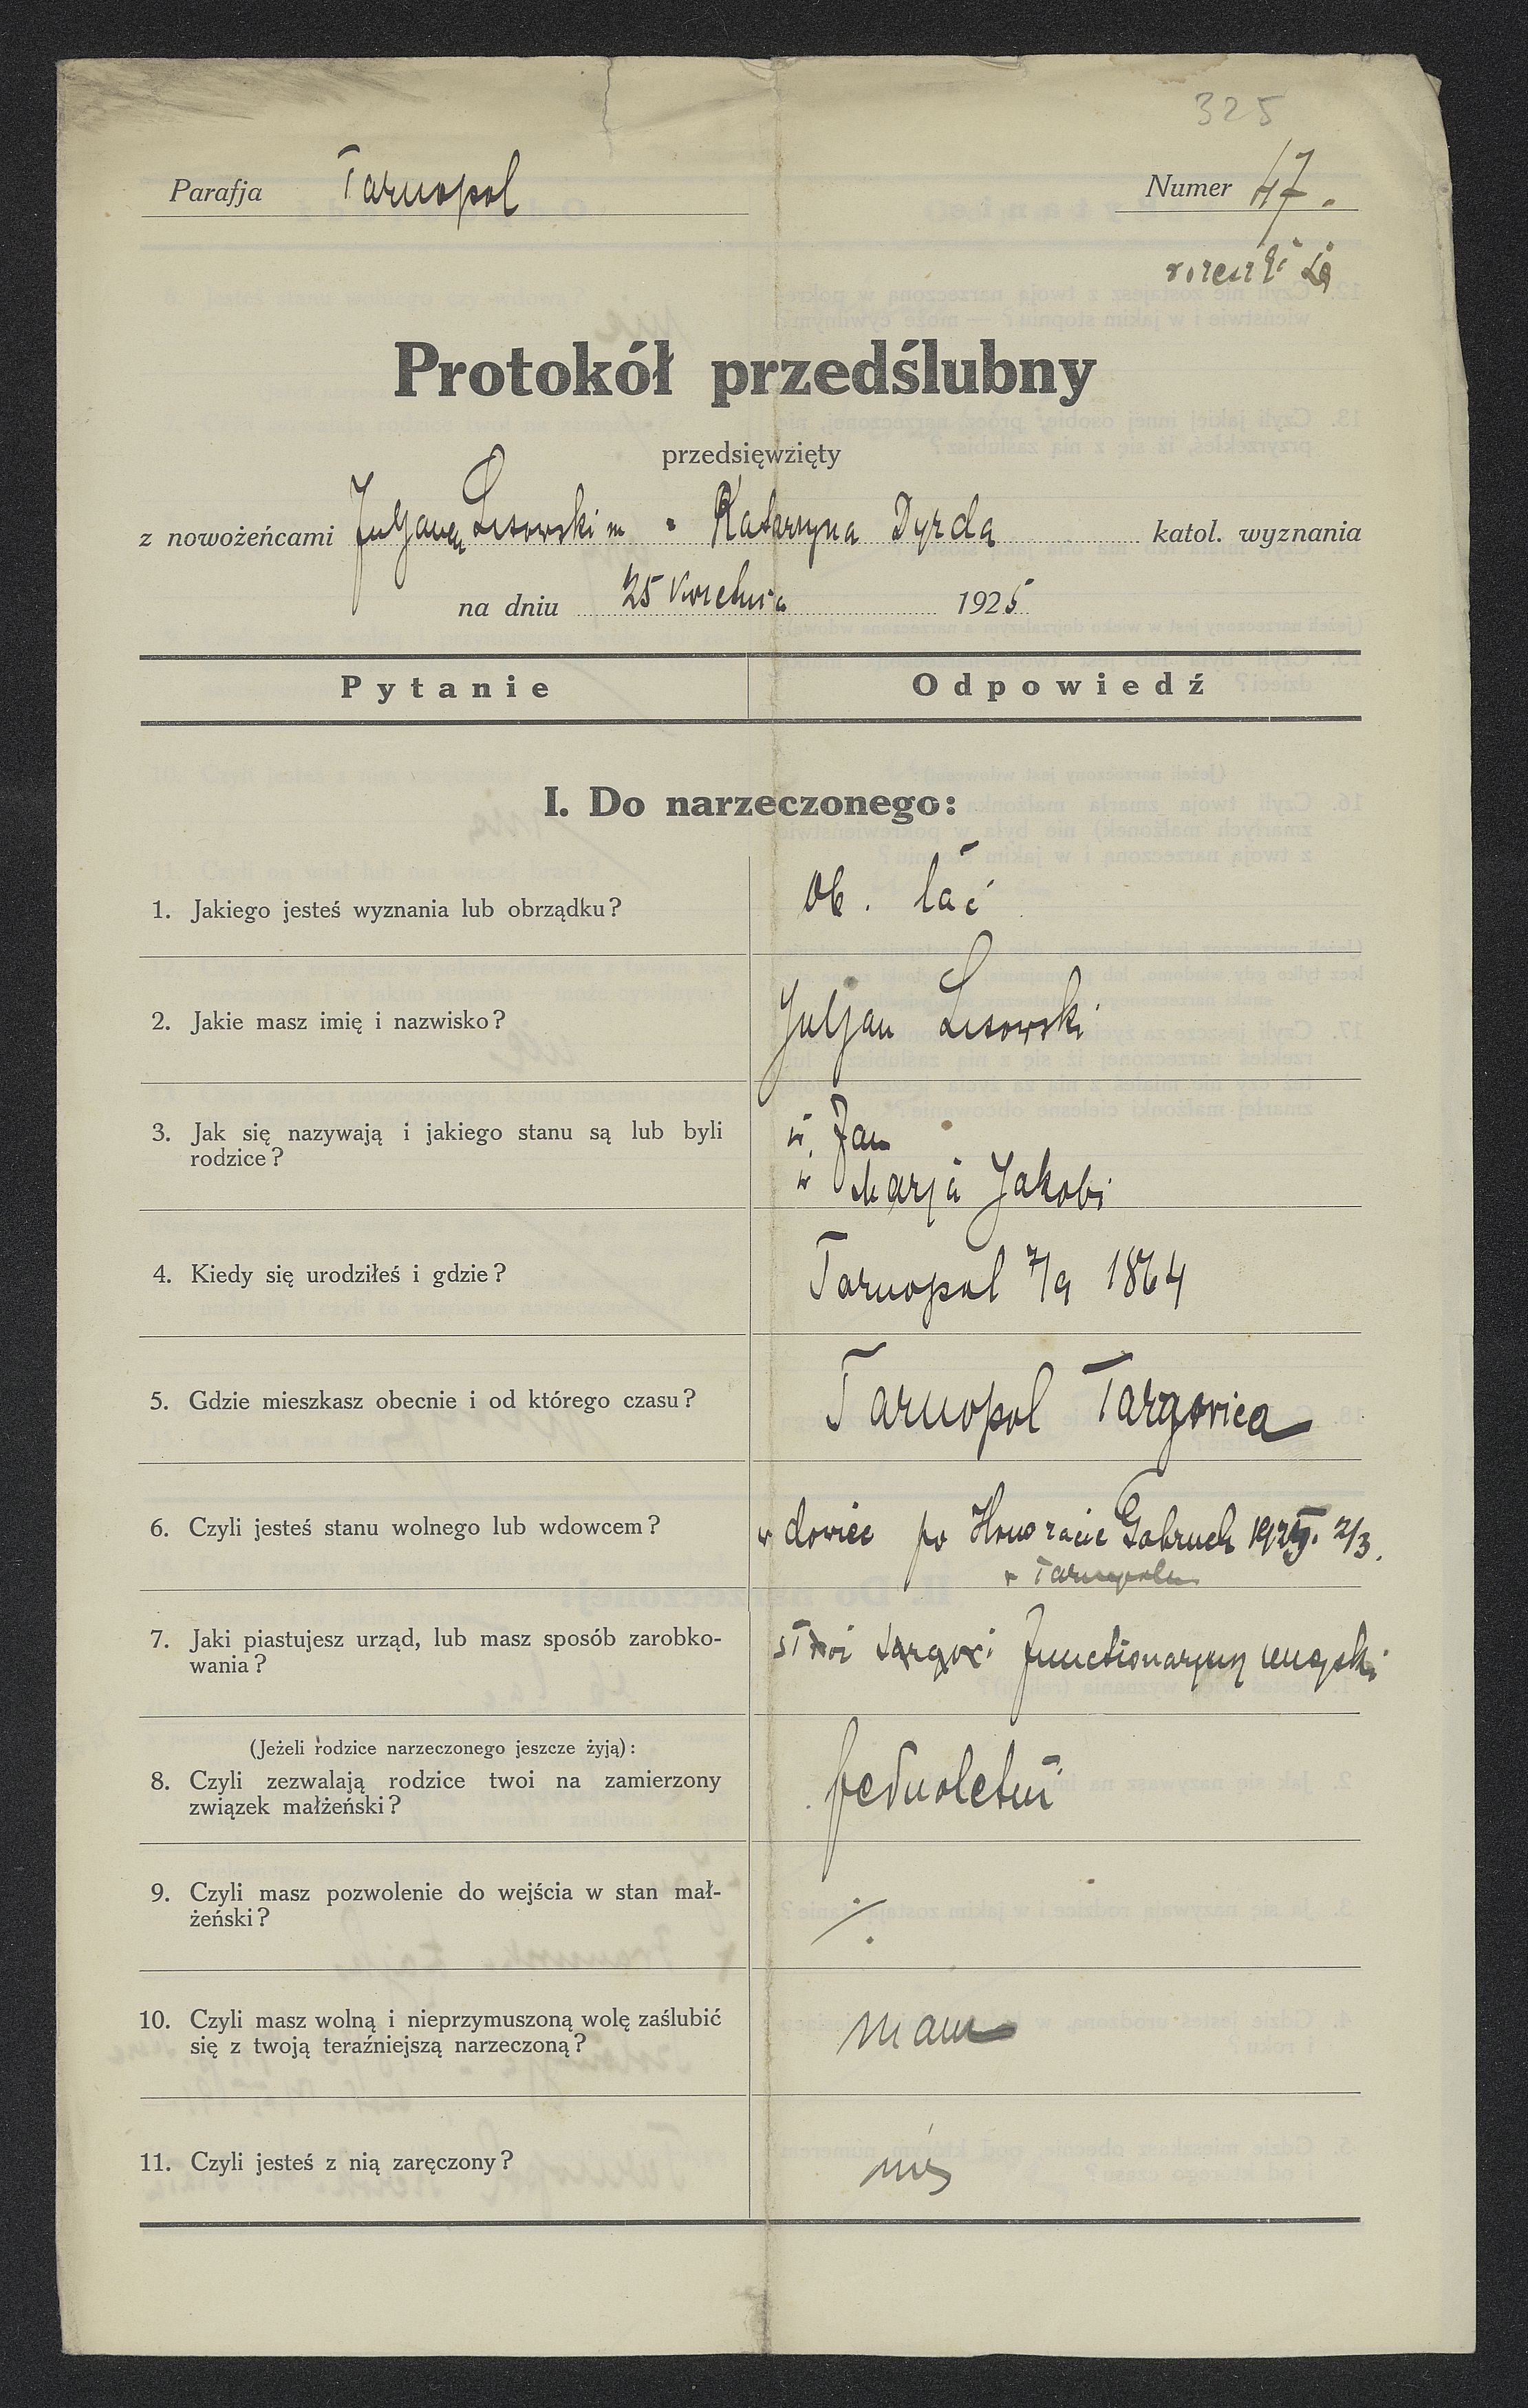 325
Parafja Tarnopol
Numer 47.
Protokół przedślubny
przedsięwzięty
z nowożeńcami Juljanem Lisowskim a Katarzyna Dyrda katol. wyznania
na dniu 25 Kwietnia 1925
Pytanie Odpowiedź
I. Do narzeczonego:
1. Jakiego jesteś wyznania lub obrządku? ob. łać
2. Jakie masz imię i nazwisko? Juljan Lisowski
3. Jak się nazywają i jakiego stanu są lub byli
rodzice?
Jan
Marja Jakobi
4. Kiedy się urodziłeś i gdzie? Tarnopol 7/9 1864
5. Gdzie mieszkasz obecnie i od którego czasu? Tarnopol Targowica
6. Czyli jesteś stanu wolnego lub wdowcem? wdowiec po Honoracie 2/3.
w Tarnopolu
7. Jaki piastujesz urząd, lub masz sposób zarobko-
wania?
functionaryusz miejski
(Jeżeli rodzice narzeczonego jeszcze żyją):
8. Czyli zezwalają rodzice twoi na zamierzony
związek małżeński?
pełnoletni
9. Czyli masz pozwolenie do wejścia w stan mał-
żeński?
./.
10. Czyli masz wolną i nieprzymuszoną wolę zaślubić
się z twoją teraźniejszą narzeczoną?
mam
11. Czyli jesteś z nią zaręczony? nie